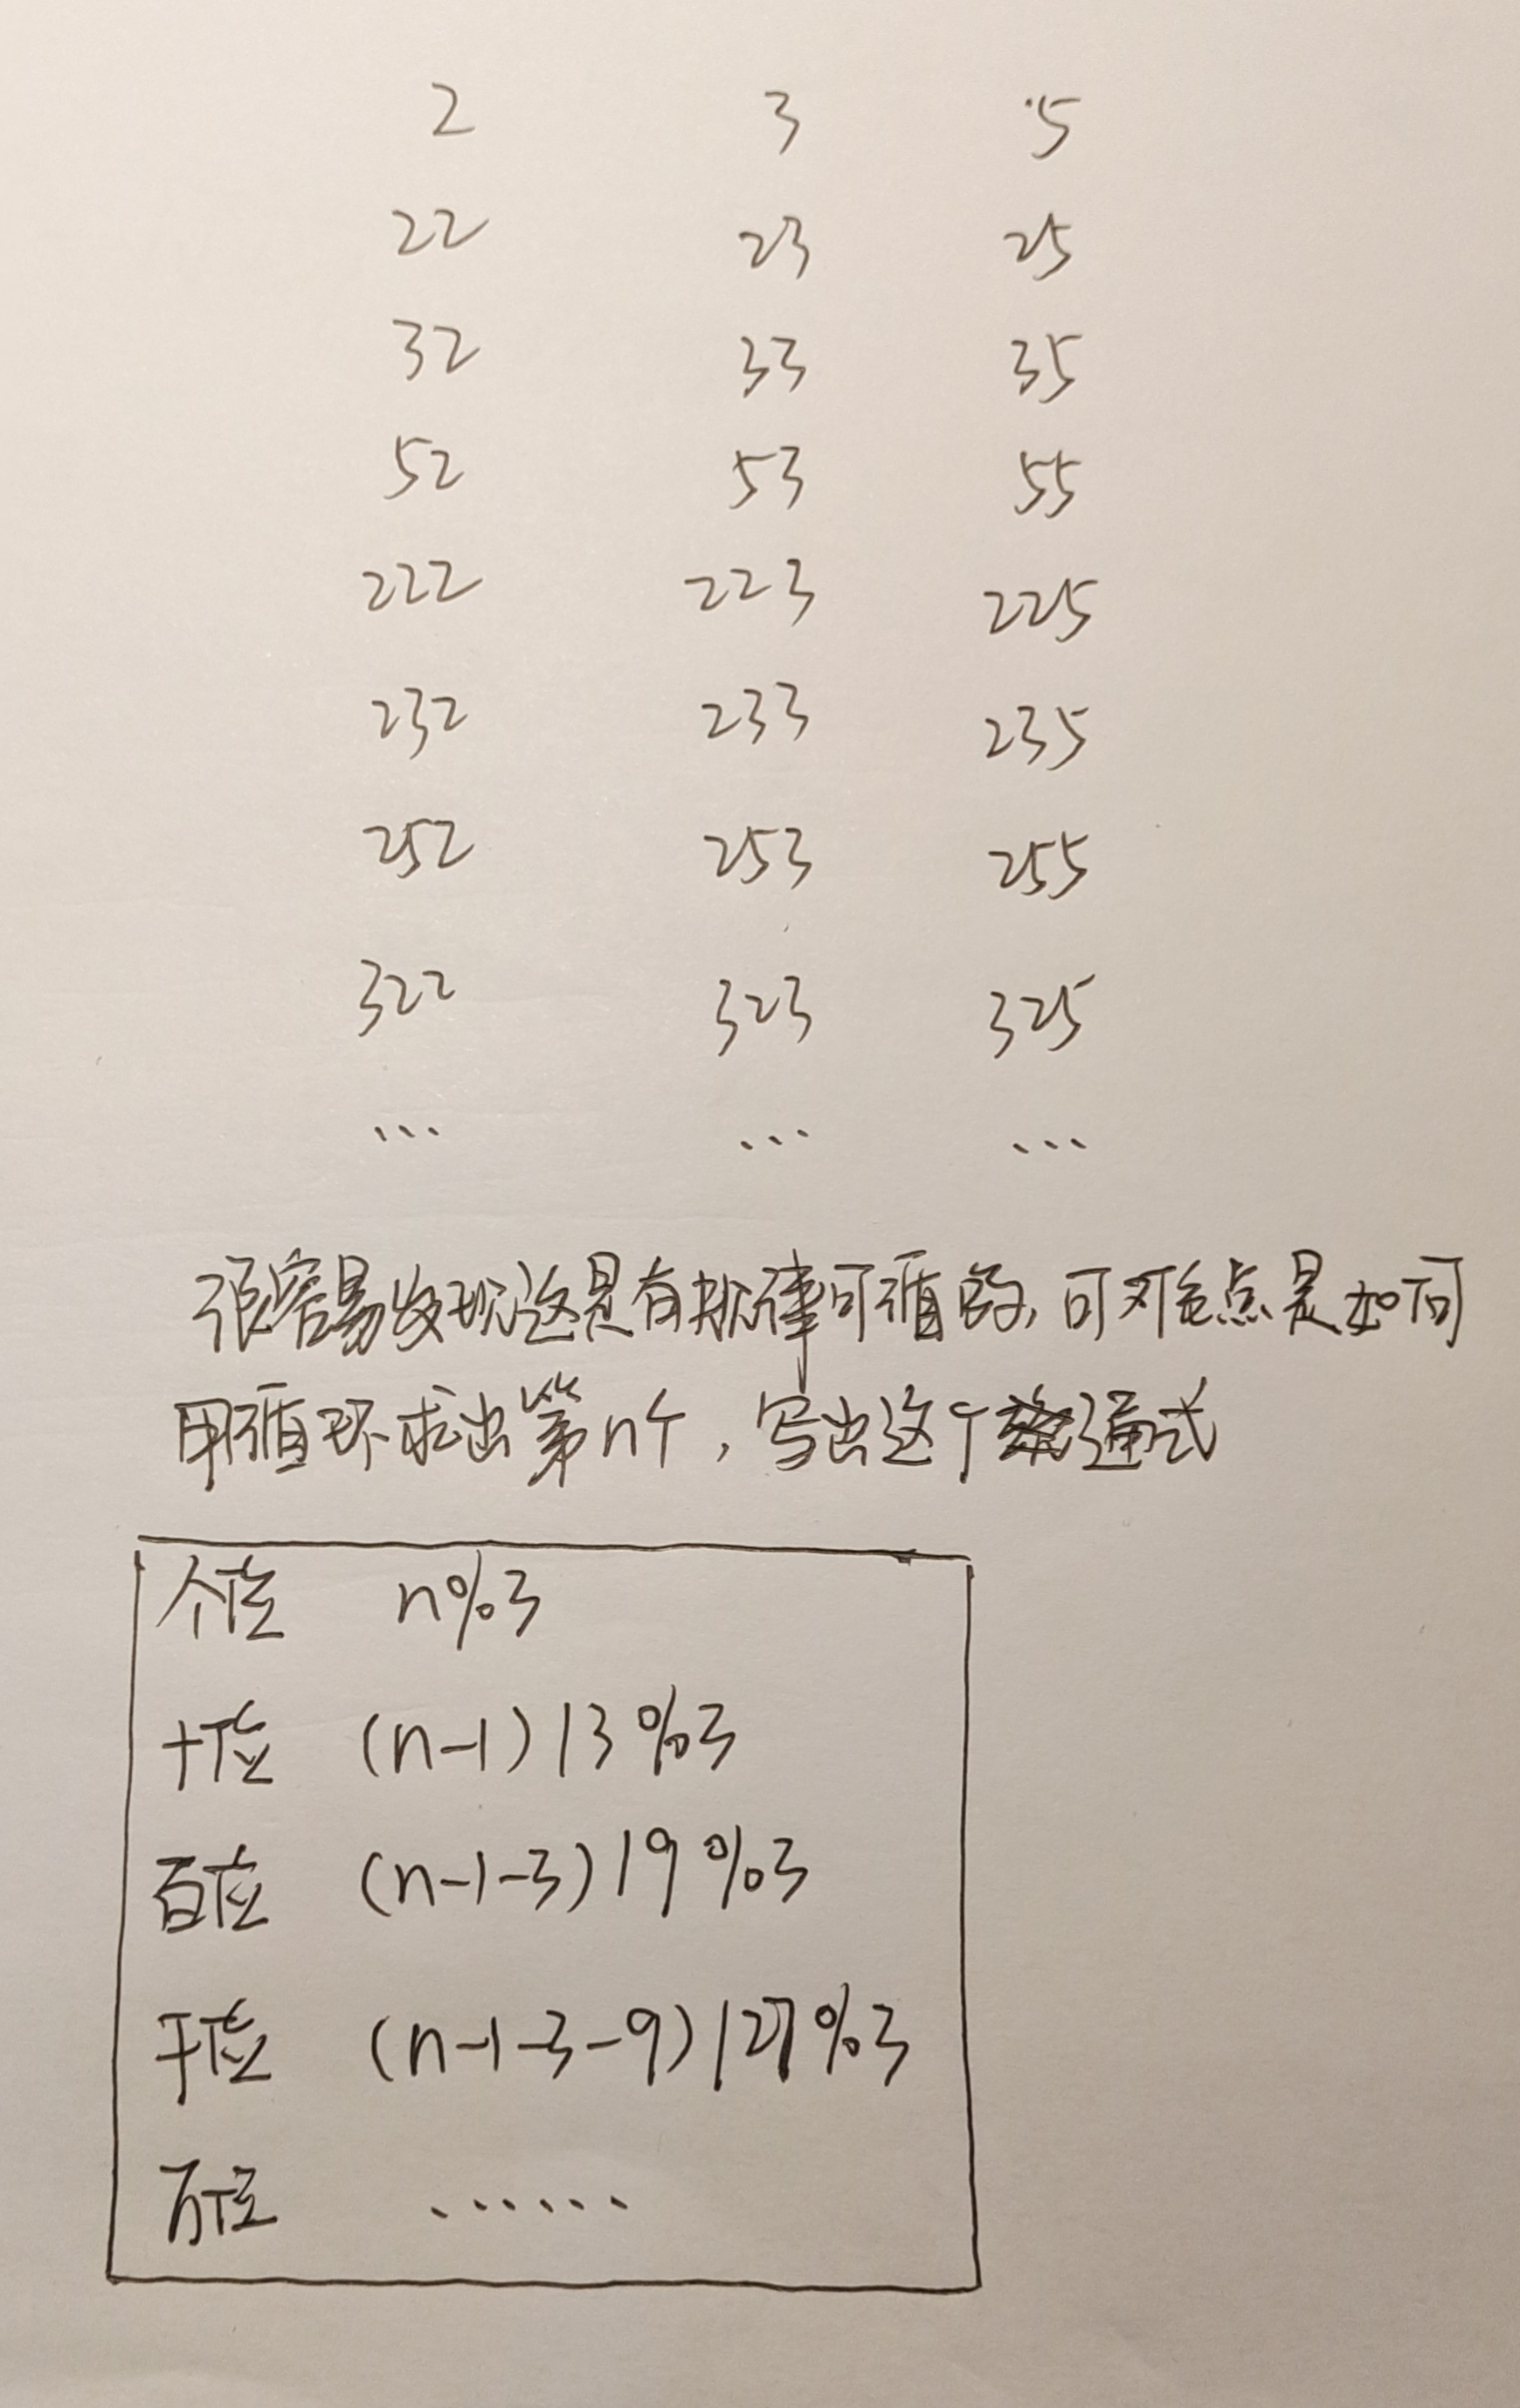 2 3 5
22 23 25
32 33 35
52 53 55
222 223 225
232 233 235
252 253 255
322 323 325
... ... ...
很容易发现这是有规律可循的,可难点是如何
用循环求出第n个,写出这个通式
个位 n%3
十位 (n-1)/3%3
百位 (n-1-3)/9%3
千位 (n-1-3-9)/27%3
万位 ······